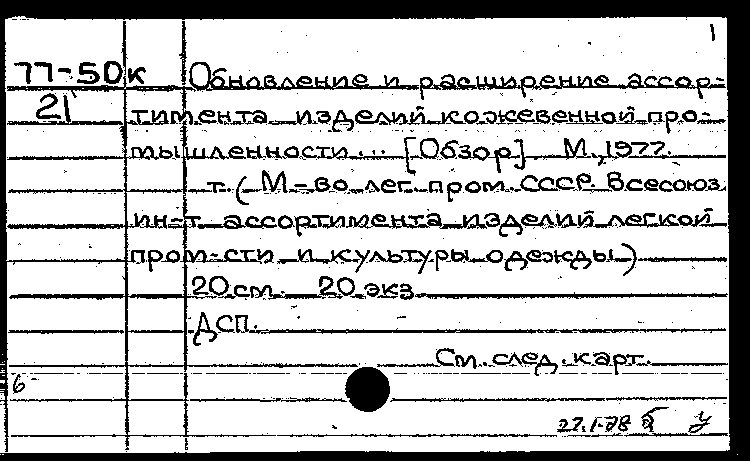 1
77-50к Обновление и расширение ассор-
21 тимента изделий кожевенной про-
мышленности... [Обзор] М., 1977.
т. (М-во лег. пром. СССР. Всесоюз.
ин-т ассортимента изделий легкой
пром-сти и культуры одежды)
20 см. 20 экз.
ДСП.
См. след. карт.
6
27.I-78